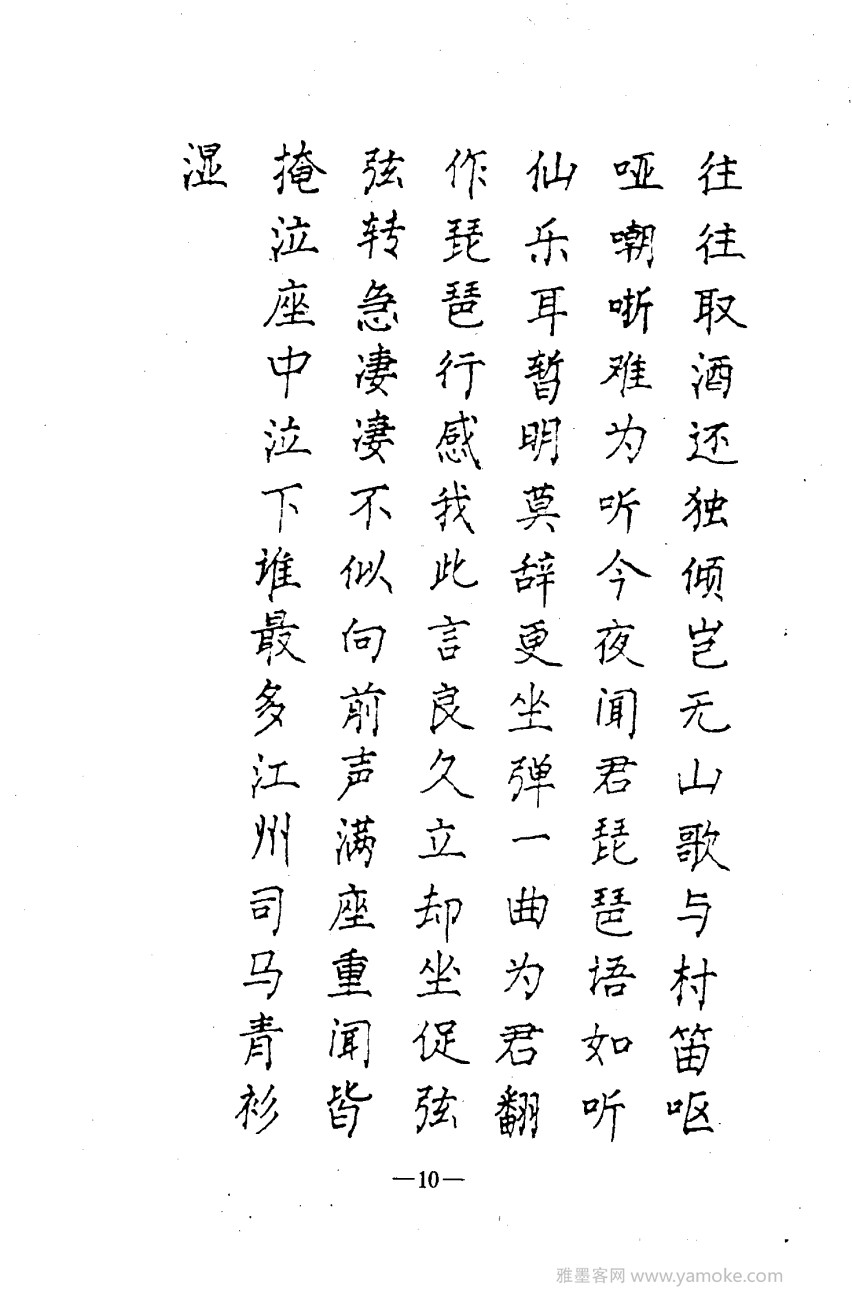 往往取酒还独倾岂无山歌与村笛呕
哑嘲哳难为听今夜闻君琵琶语如听
仙乐耳暂明莫辞更坐弹一曲为君翻
作琵琶行感我此言良久立却坐促弦
弦转急凄凄不似向前声满座重闻皆
掩泣座中泣下谁最多江州司马青衫
湿
—10—
雅墨客网 www.yamoke.com